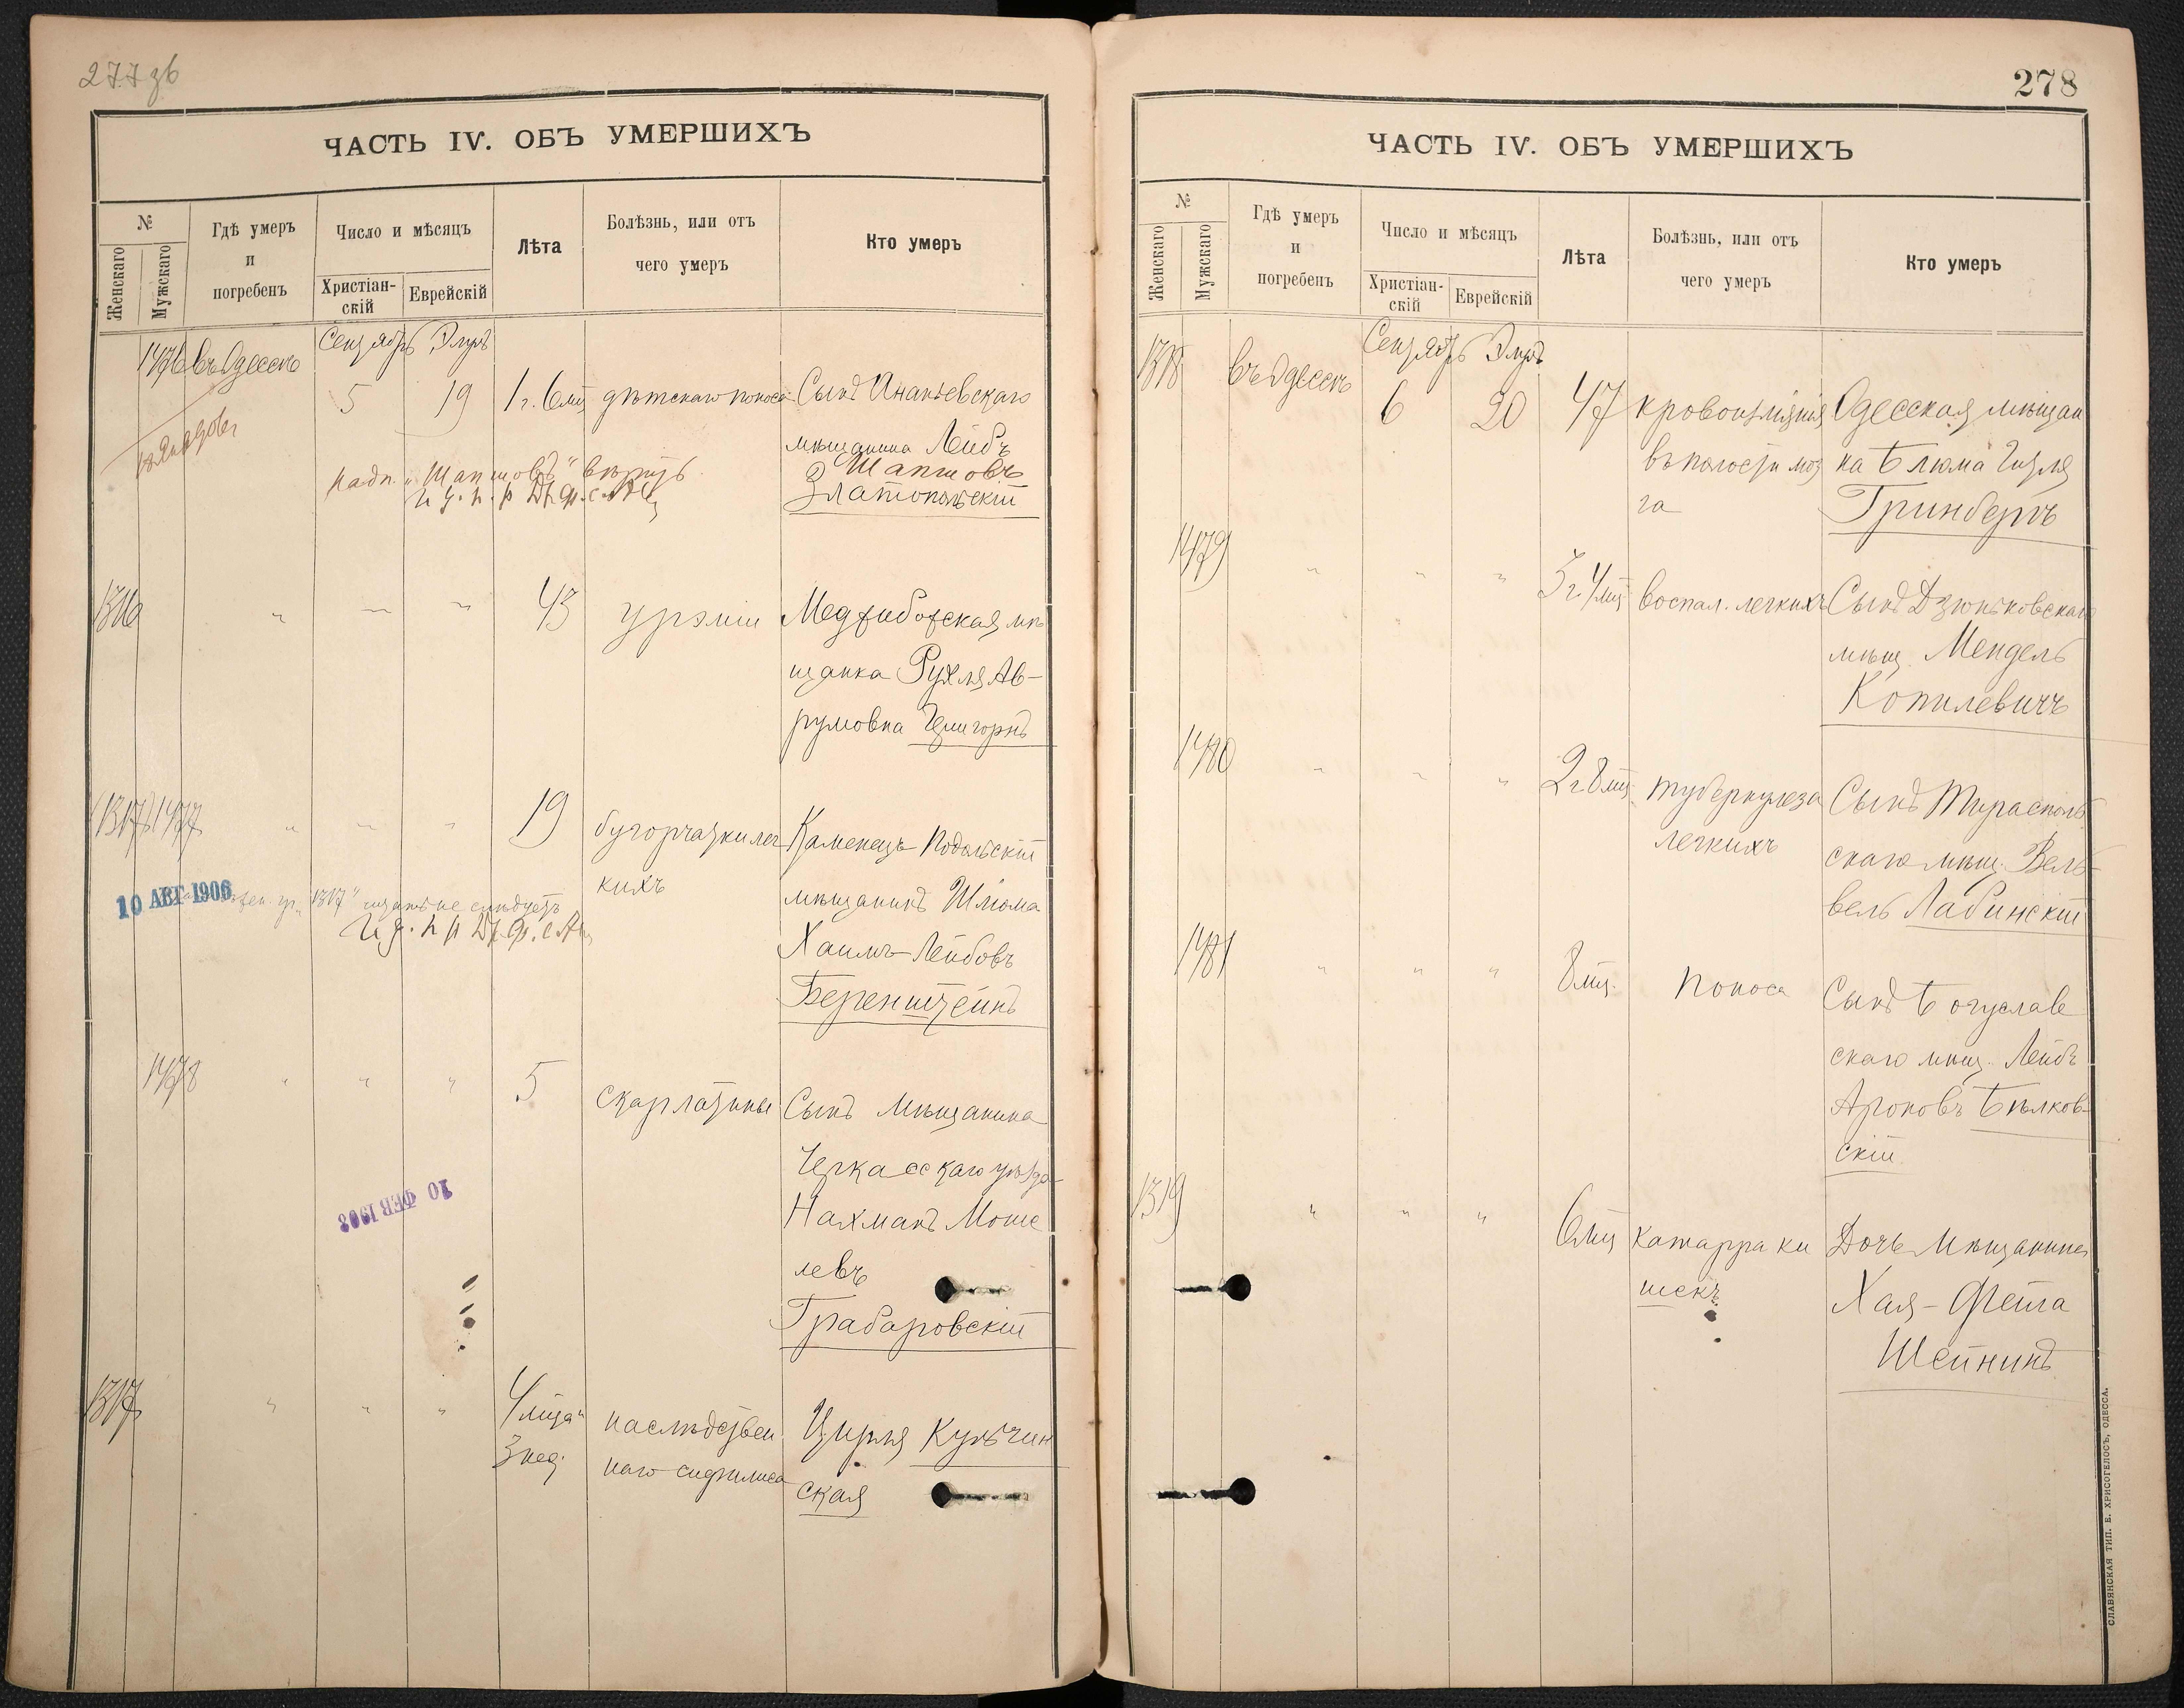 277 зв
ЧАСТЬ IV. ОБЪ УМЕРШИХЪ
№
Женскаго
Мужскаго
Гдѣ умеръ
и
погребенъ
Число и мѣсяцъ
Христіан-
скій
Еврейскій
Лѣта
Болѣзнь, или отъ
чего умеръ
Кто умеръ
1476 въ Одессѣ Сентябрь Элулъ
5 19 1 г. 6 мц дѣтскаго поноса Сынъ Ананьевскаго
мѣщанина Лейбъ
Шапшовъ
Златопольскій
надп. „Шапшовъ" вѣрить
1316 " " " 43 урэміи Меджибожская мѣ
щанка Рухля Ав-
румовна
1317 1477 " " " 19 бугорчатки лег
кихъ
Каменецъ Подольскій
мѣщанинъ Шлiома
Хаимъ-Лейбовъ
Беренштейнъ
10 АВГ 1906
„1317" читать не слѣдуетъ
1478 " " " 5 скарлатины Сынъ Мѣщанина
Черкасскаго уѣзда
Нахманъ Моше
левъ
Грабаровскій
10 ФЕВ 1903
1317 " " " 4 мца
3 нед.
наслѣдствен
наго сифилиса
Цирля Кульчин
ская
278
ЧАСТЬ IV. ОБЪ УМЕРШИХЪ
№
Женскаго
Мужскаго
Гдѣ умеръ
и
погребенъ
Число и мѣсяцъ
Христіан-
скій
Еврейскій
Лѣта
Болѣзнь, или отъ
чего умеръ
Кто умеръ
1318 въ Одессѣ Сентябрь Элулъ
6 20 47 кровоизліянія
въ полости моз
га
Одесская мѣщан
ка Блюма Гитля
Гринбергъ
1479 " " " 3 г. 4 мц воспал. легкихъ Сынъ Дзюньковскаго
мѣщ. Мендель
Копилевичъ
1480 " " " 2 г 8 мц. туберкулеза
легкихъ
Сынъ Тирасполь
скаго мѣщ. Вель-
вель Лабинскій
1481 " " " 8 мц. поноса Сынъ Богуслав
скаго мѣщ. Лейбъ
Ароновъ Бѣлков-
скій.
1319 " " " 6 мц катарра ки
шекъ
Дочь Мѣщанина
Хая-Фейга
Шейнинъ
СЛАВЯНСКАЯ ТИП. Е. ХРИСОГЕЛОСЪ, ОДЕССА.